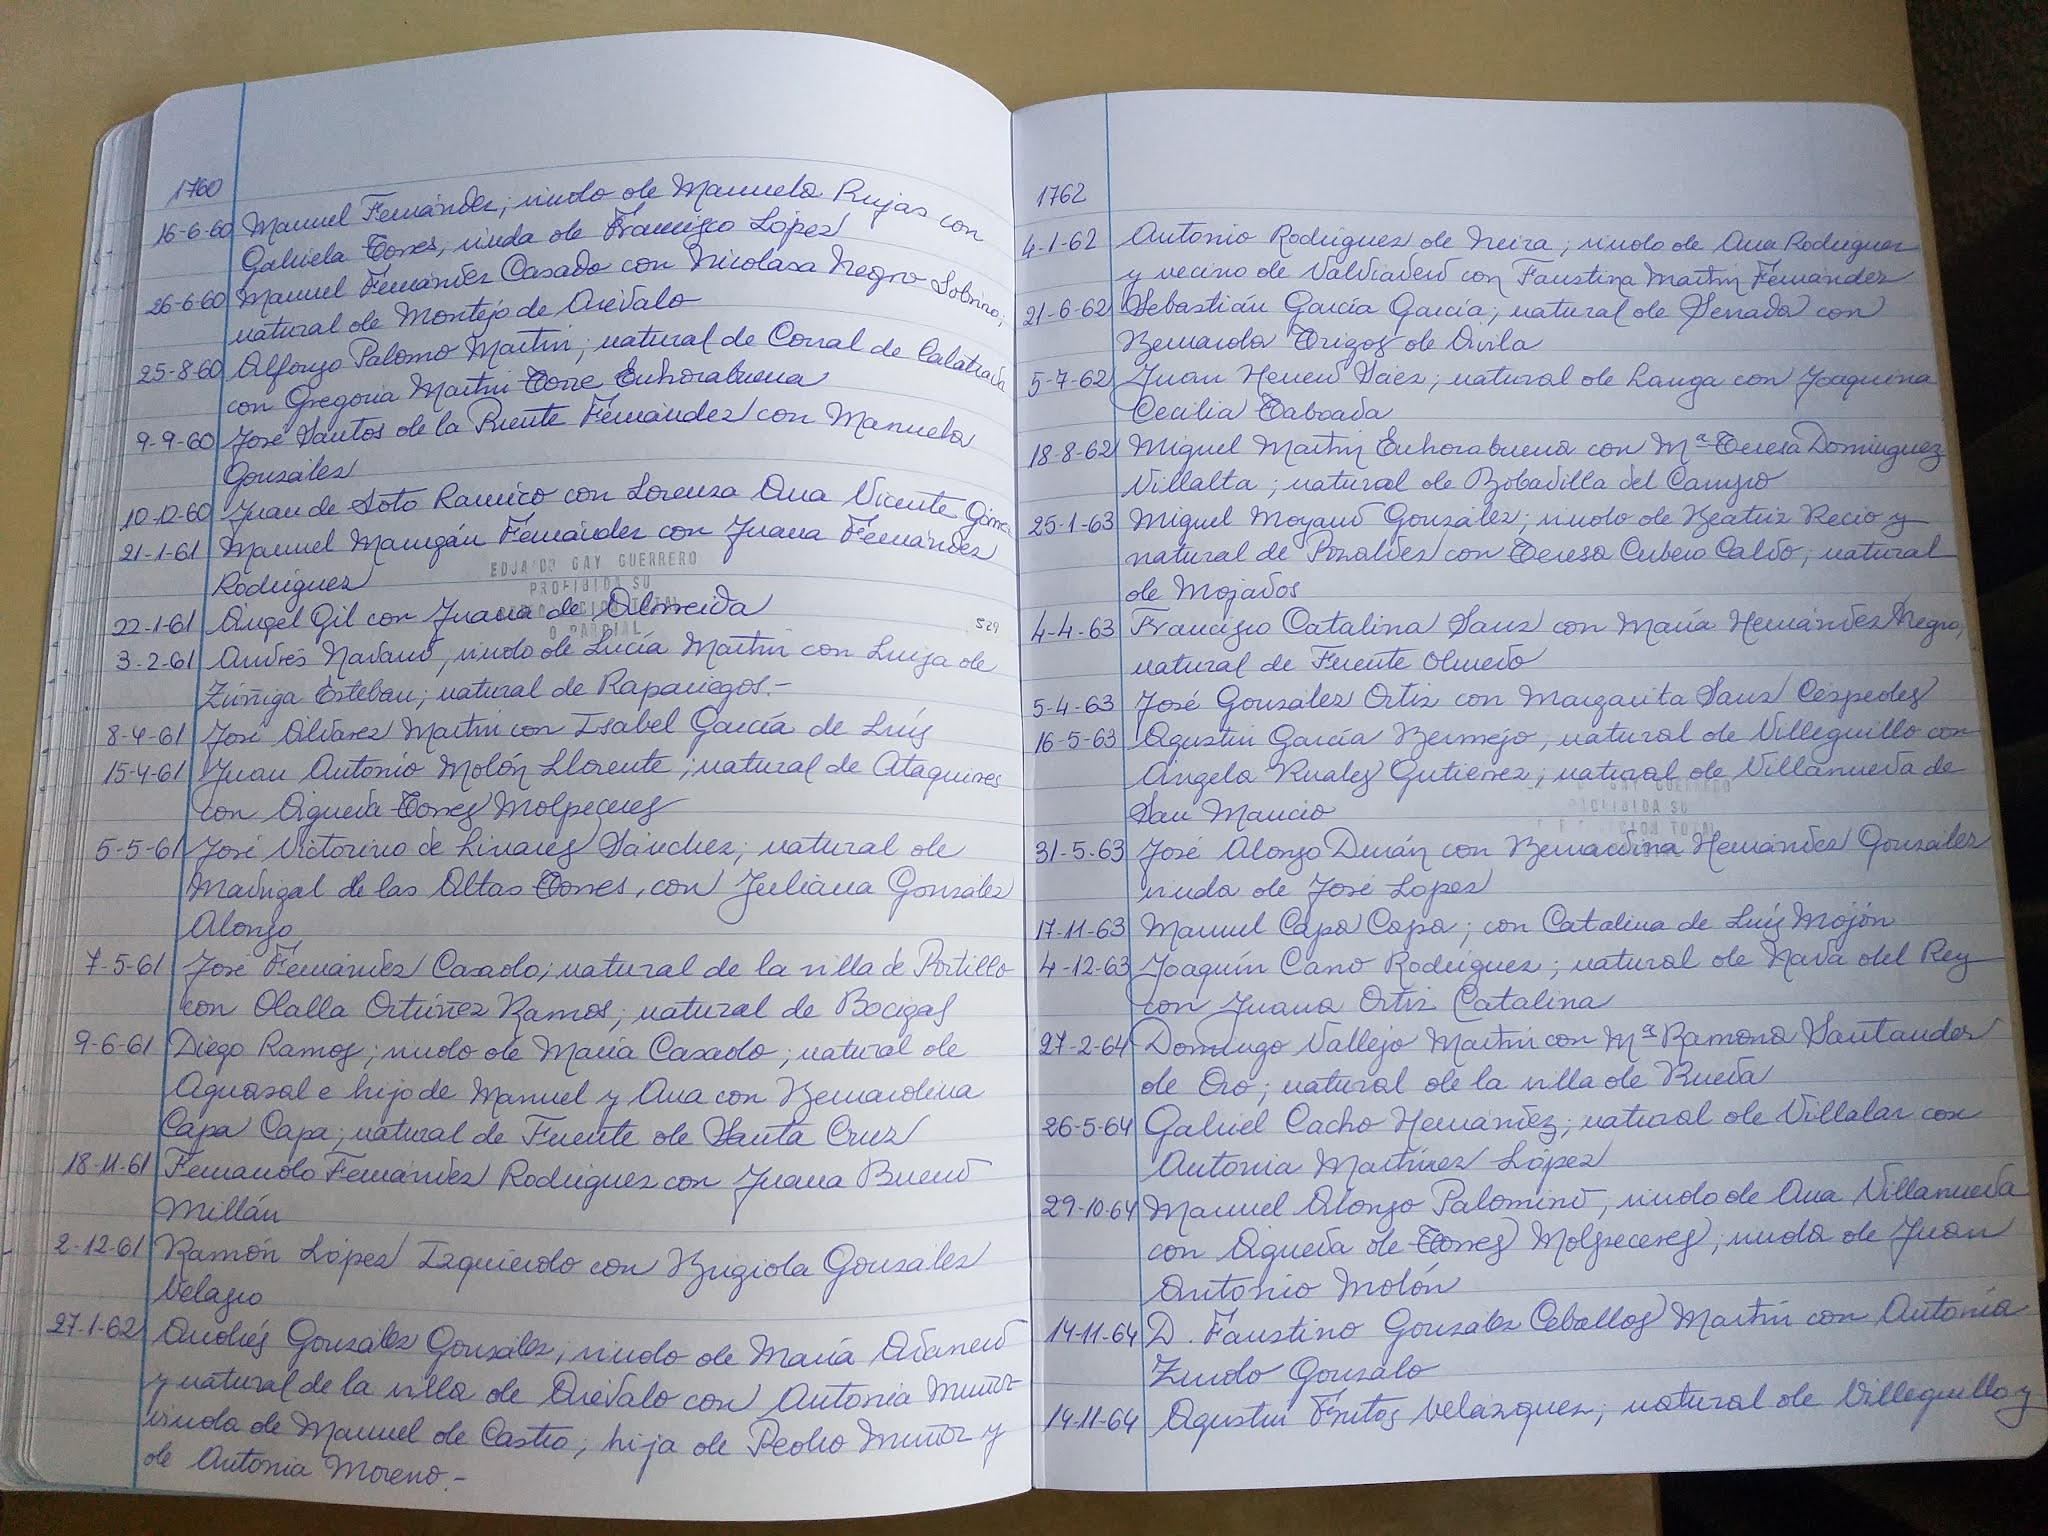 1760
16-6-60 Manuel Fernández; viudo de Manuela Rujas con
Gabriela Torres, viuda de Francisco López
26-6-60 Manuel Fernández Casado con Nicolasa Negro Sobrino;
natural de Montejo de Arévalo
25-8-60 Alfonso Palomo Martín; natural de Corral de Calatrava
con Gregoria Martín Torre Enhorabuena
9-9-60 José Santos de la Puente Fernández con Manuela
González
10-12-60 Juan de Soto Ramiro con Lorenza Ana Vicente Gómez
21-1-61 Manuel Mangán Fernández con Juana Fernández
Rodríguez
EDUARDO GAY GUERRERO
PROHIBIDA SU
REPRODUCCION TOTAL
O PARCIAL
22-1-61 Ángel Gil con Juana de Almeida
529
3-2-61 Andrés Navarro, viudo de Lucía Martín con Luisa de
Zúñiga Esteban; natural de Rapariegos.-
8-4-61 José Álvarez Martín con Isabel García de Luís
15-4-61 Juan Antonio Molón Llorente; natural de Ataquines
con Águeda Torres Molpeceres
5-5-61 José Victorino de Linares Sánchez; natural de
Madrigal de las Altas Torres, con Juliana González
Alonso
7-5-61 José Fernández Casado; natural de la villa de Portillo
con Olalla Ortúñez Ramos; natural de Bocigas
9-6-61 Diego Ramos; viudo de María Casado; natural de
Aguasal e hijo de Manuel y Ana con Bernardina
Capa Capa; natural de Fuente de Santa Cruz
18-11-61 Fernando Fernández Rodríguez con Juana Bueno
Millán
2-12-61 Ramón López Izquierdo con Brígida González
Velasco
27-1-62 Andrés González González; viudo de María Adanero
y natural de la villa de Arévalo con Antonia Muñoz
viuda de Manuel de Castro; hija de Pedro Muñoz y
de Antonia Moreno.-
1762
4-1-62 Antonio Rodríguez de Neira; viudo de Ana Rodríguez
y vecino de Valviadero con Faustina Martín Fernández
21-6-62 Sebastián García García; natural de Senada con
Bernarda Trigos de Ávila
5-7-62 Juan Herrero Sáez; natural de Langa con Joaquina
Cecilia Taboada
18-8-62 Miguel Martín Enhorabuena con Mª Teresa Domínguez
Villalta; natural de Bobadilla del Campo
25-1-63 Miguel Moyano González; viudo de Beatriz Recio y
natural de Pozaldez con Teresa Cubero Calvo; natural
de Mojados
4-4-63 Francisco Catalina Sanz con María Hernández Negro;
natural de Fuente Olmedo
5-4-63 José González Ortiz con Margarita Sanz Céspedes
16-5-63 Agustín García Bermejo, natural de Villeguillo con
Ángela Ruales Gutiérrez; natural de Villanueva de
San Mancio
GAY GUERRERO
PROHIBIDA SU
REPRODUCCION TOTAL
31-5-63 José Alonso Durán con Bernardina Hernández González
viuda de José López
17-11-63 Manuel Capa Capa; con Catalina de Luís Mojón
4-12-63 Joaquín Cano Rodríguez; natural de Nava del Rey
con Juana Ortiz Catalina
27-2-64 Domingo Vallejo Martín con Mª Ramona Santander
de Oro; natural de la villa de Rueda
26-5-64 Gabriel Cacho Hernández; natural de Villalar con
Antonia Martínez López
29-10-64 Manuel Alonso Palomino; viudo de Ana Villanueva
con Águeda de Torres Molpeceres; viuda de Juan
Antonio Molón
14-11-64 D. Faustino González Ceballos Martín con Antonia
Zurdo Gonzalo
14-11-64 Agustín Frutos Velázquez; natural de Villeguillo y